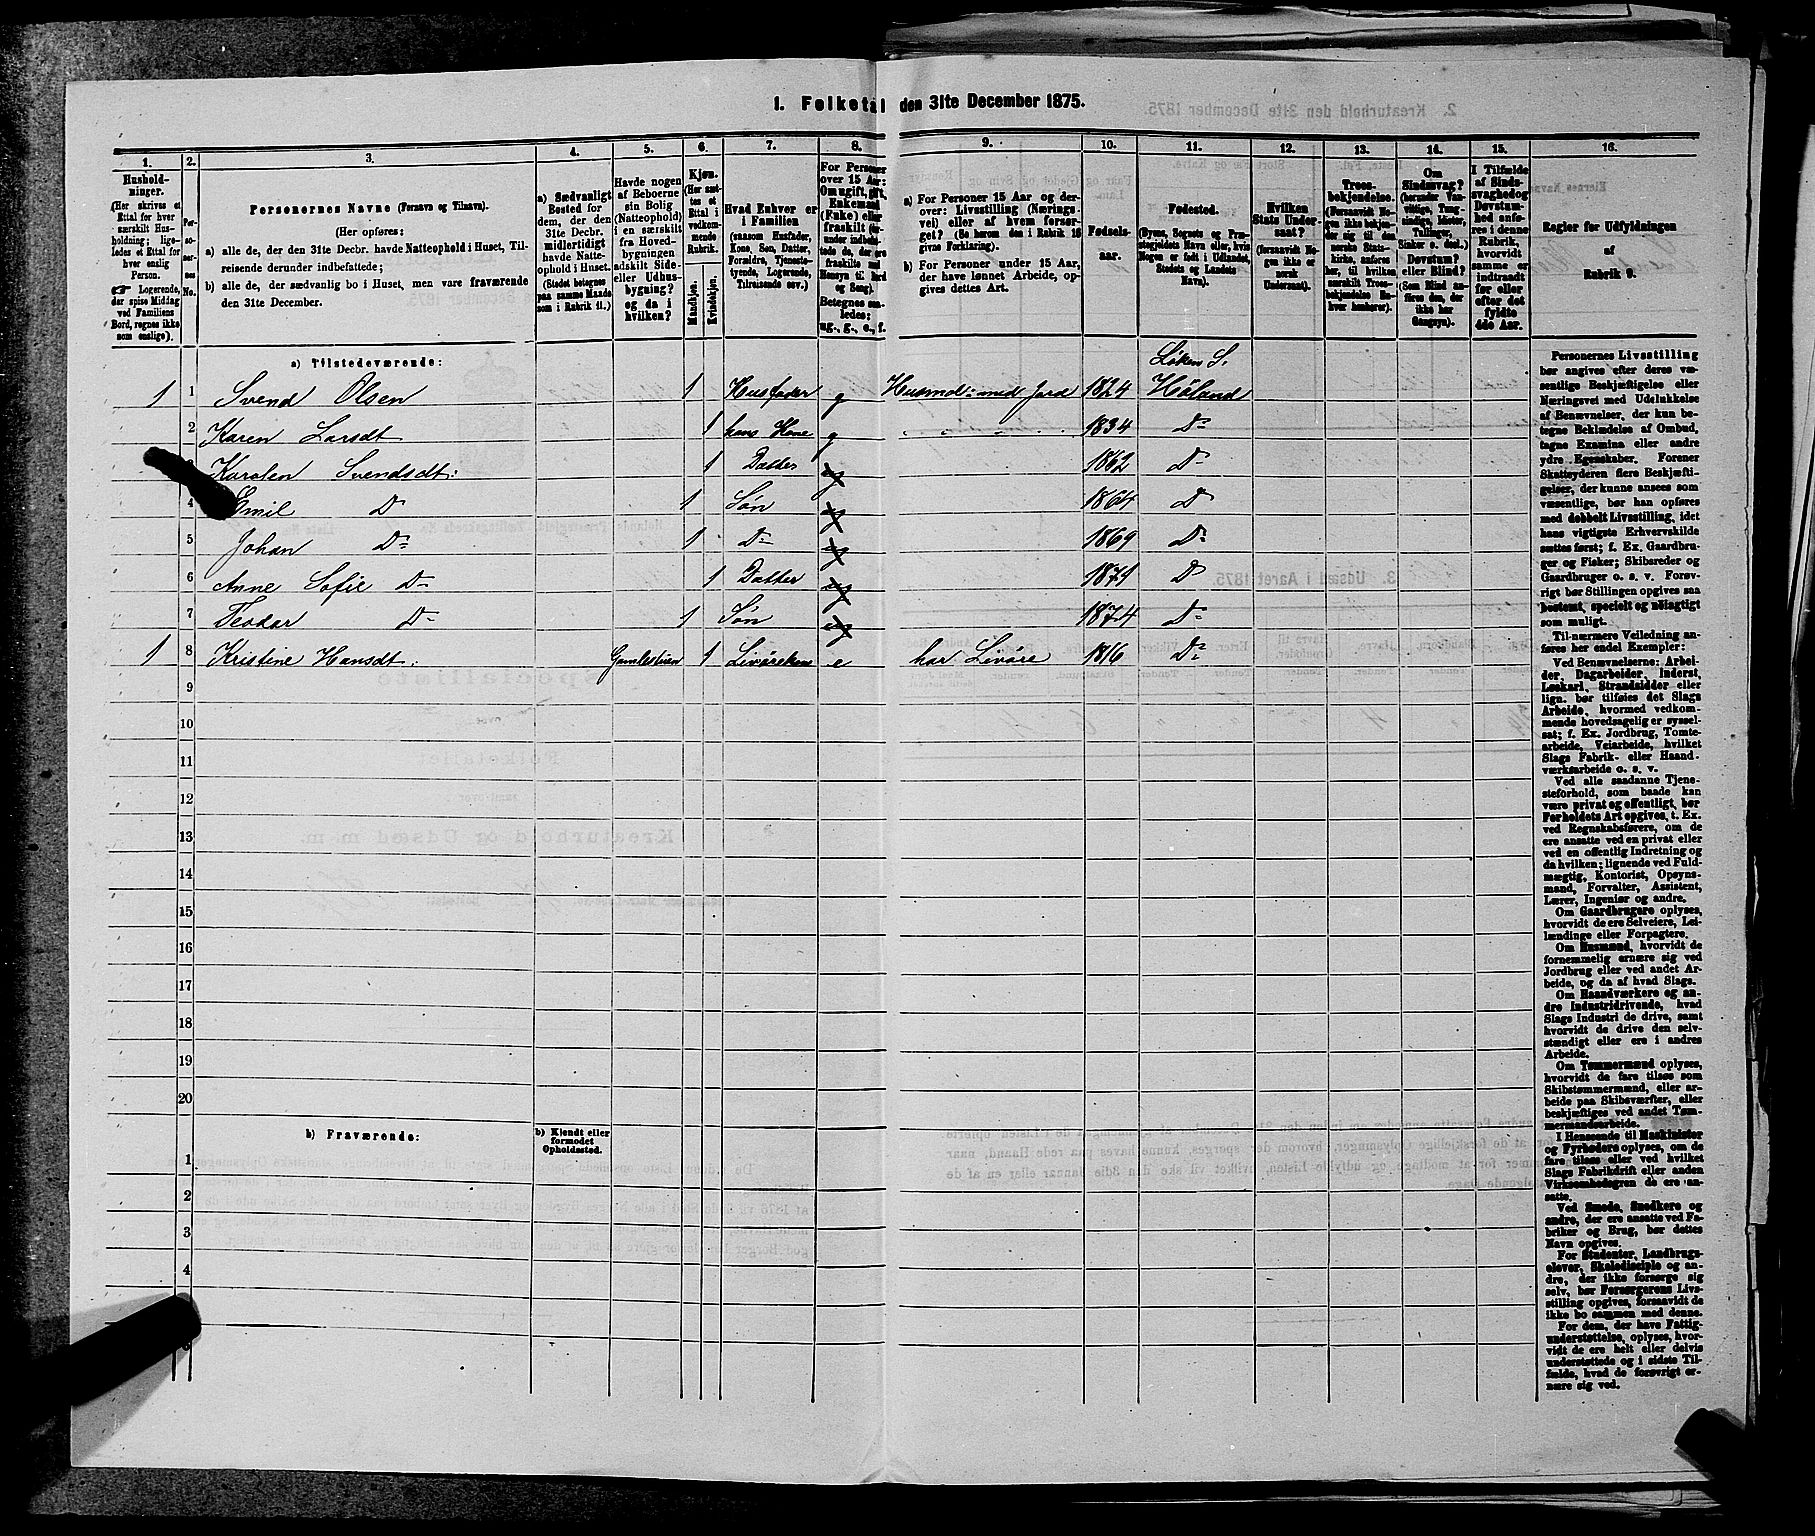 1. Folketal den 31te December 1875.
1. 2. 3. 4. 5. 6. 7. 8. 9. 10. 11. 12. 13. 14. 15. 16.
Hushold-
ninger.
(Her skrives et
Ettal for hver
særskilt Hus-
holdning; lige-
ledes et Ettal for
hver enslig
Person.
☛ Logerende,
der spise Middag
ved Familiens
Bord, regnes ikke
som enslige).
Personernes Navne (Fornavn og Tilnavn).
(Her opføres:
a) alle de, der den 31te Decbr. havde Natteophold i Huset, Til-
reisende derunder indbefattede;
b) alle de, der sædvanlig bo i Huset, men vare fraværende
den 31te December.
a) Sædvanligt
Bosted for
dem, der den
31te Decbr.
midlertidigt
havde Natte-
ophold i Huset.
(Stedet betegnes
paa samme Maade
som i Rubrik 11.)
Havde nogen
af Beboerne
sin Bolig
(Natteophold)
i en særskilt
fra Hoved-
bygningen
adskilt Side-
eller Udhus-
bygning?
og da i
hvilken?
Kjøn.
(Her sæt-
tes et
Ettal i
vedkom-
mende
Rubrik.
Mandkjøn.
Kvindekjøn.
Hvad Enhver er
i Familien
(saasom Husfader,
Kone, Søn, Datter,
Forældre, Tjeneste-
tyende, Logerende,
Tilreisende osv.)
For Personer
over 15 Aar:
Om ugift, gift,
Enkemand
(Enke) eller
fraskilt
Betegnes saa-
ledes:
ug., g., e., f.
a) For Personer 15 Aar og der-
over: Livsstilling (Nærings-
vei) eller af hvem forsør-
get? (Se herom den i Rubrik 16
givne Forklaring).
b) For Personer under 15 Aar,
der have lønnet Arbeide, op-
gives dettes Art.
Fødsels-
aar.
Fødested.
(Byens, Sognets og Præ-
stegjeldets Navn eller, hvis
Nogen er født i Udlandet,
Stedets og Landets
Navn).
Hvilken
Stats Under-
saat?
(forsaavidt No-
gen ikke er
norsk
Undersaat).
Troes-
bekjendelse.
(Forsaavidt No-
gen ikke bekjen-
der sig til den
norske Stats-
kirke, anføres
her, til hvilken
særskilt Troes-
bekjendelse En-
hver henhører).
Om
Sindssvag?
(herunder Van-
vittige, Tung-
sindige, Idioter,
Tullinger,
Sinker o. desl.)
Døvstum?
eller Blind?
(Som Blind an-
føres den, der
ikke har
Gangsyn).
I Tilfælde
af Sinds-
svaghed og
Døvstum-
hed anfø-
res i denne
Rubrik,
hvorvidt
samme er
indtraadt
før eller
efter det
fyldte
4de Aar.
Regler for Udfyldningen
af
Rubrik 9.
a) Tilstedeværende:
Løken S.
1 1 Svend Olsen 1 Husfader g Husmd: med Jord 1824 Høland
2 Karen Larsdt 1 hans Kone g 1834 Do
Karoten Svendsdt: 1 Datter ug 1862 Do
4 Emil Do 1 Søn ug 1864 Do
5 Johan Do 1 Do ug 1869 Do
6 Anne Sofie Do 1 Datter ug 1871 Do
7 Teodor Do 1 Søn ug 1874 Do
1 8 Kristine Hansdt: 1 e har Livøre 1816 Do
9
10
11
12
13
14
15
16
17
18
19
20
b) Fraværende:
b) Kjendt eller
formodet
Opholdssted.
1
2
3
4
Personernes Livsstilling
bør angives efter deres væ-
sentlige Beskjæftigelse eller
Næringsvei med Udelukkelse
af Benævnelser, der kun be-
tegne Beklædelse af Ombud,
tagne Examina eller andre
ydre Egenskaber. Forener
Skatteyderen flere Beskjæfti-
gelser, der kunne ansees som
væsentlige, bør han opføres
med dobbelt Livsstilling, idet
hans vigtigste Erhvervskilde
sættes først; f. Ex. Gaardbru-
ger og Fisker; Skibsreder og
Gaardbruger o. s. v. Forøv-
rigt bør Stillingen opgives saa
bestemt, specielt og nøiagtigt
som muligt.
Til nærmere Veiledning an-
føres her endel Exempler:
Ved Benævnelserne: Arbei-
der, Dagarbeider, Inderst,
Løskarl, Strandsidder eller
lign. bør tilføies det Slags
Arbeide, hvormed vedkom-
mende hovedsagelig er syssel-
sat; f. Ex. Jordbrug, Tomte-
arbeide, Veiarbeide, hvilket
Slags Fabrik- eller Haand-
værksarbeide o. s. v.
Ved alle saadanne Tjene-
steforhold, som baade kan
være privat og offentligt, bør
Forholdets Art opgives, t. Ex.
ved Regnskabsførere, om de
ere ansatte ved en privat eller
ved en offentlig Indretning og
da hvilken; lignende ved Fuld-
mægtig, Kontorist, Opsyns-
mand, Forvalter, Assistent,
Lærer, Ingeniør og andre.
Om Gaardbrugere oplyses,
hvorvidt de ere Selveiere, Lei-
lændinge eller Forpagtere.
Om Husmænd, hvorvidt de
fornemmelig ernære sig ved
Jordbrug eller ved andet Ar-
beide, og da af hvad Slags.
Om Haandværkere og an-
dre Industridrivende, hvad
Slags Industri de drive, samt
hvorvidt de drive den selv-
stændigt eller ere i andres
Arbeide.
Om Tømmermænd oplyses,
hvorvidt de fare tilsøs som
Skibstømmermænd, eller ar-
beide paa Skibsværfter, eller
beskjæftiges ved andet Tøm-
mermandsarbeide.
I Henseende til Maskinister
og Fyrbødere oplyses, om de
fare tilsøs eller ved hvilket
Slags Fabrikdrift eller anden
Virksomhedsgren de ere an-
satte.
Ved Smede, Snedkere og
andre, der ere ansatte ved Fa-
briker og Brug, bør dettes
Navn opgives.
For Studenter, Landbrugs-
elever, Skoledisciple og an-
dre, der ikke forsørge sig
selv, bør Forsørgerens Livs-
stilling opgives, forsaavidt de
ikke bo sammen med denne.
For dem, der have Fattig-
understøttelse, oplyses, hvor-
vidt de ere helt eller delvis
understøttede og i sidste Til-
fælde, hvad de forøvrigt er-
nære sig ved.